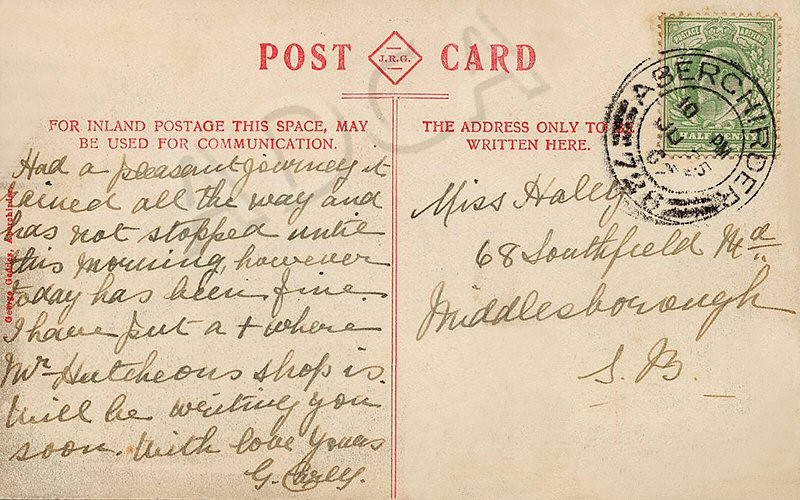 POST CARD
J.R.G.
FOR INLAND POSTAGE THIS SPACE, MAY
BE USED FOR COMMUNICATION.
THE ADDRESS ONLY TO BE
WRITTEN HERE.
Had a pleasant journey it
rained all the way and
has not stopped until
this morning, however
today has been fine.
I have put a + where
Mr Hutcheons shop is.
Will be writing you
soon. With love Yours
G.
Miss Haley
68 Southfield Rd
Middlesborough
S. B.
POSTAGE & REVENUE
HALF PENNY
ABERCHIRDER
George Geddes, Aberchirder.
ADCA